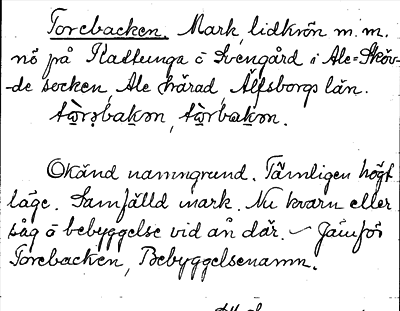 Torebacken. Mark, lidkrön m.m.
nö på Radtunga ö Svengård i Ale-Sköv-
-de socken, Ale härad, Älfsborgs län.
Okänd namngrund. Tämligen högt
läge. Samfälld mark. Nu kvarn eller
såg o bebyggelse vid ån där. – Jämför
Torebacken, Bebyggelsenamn.